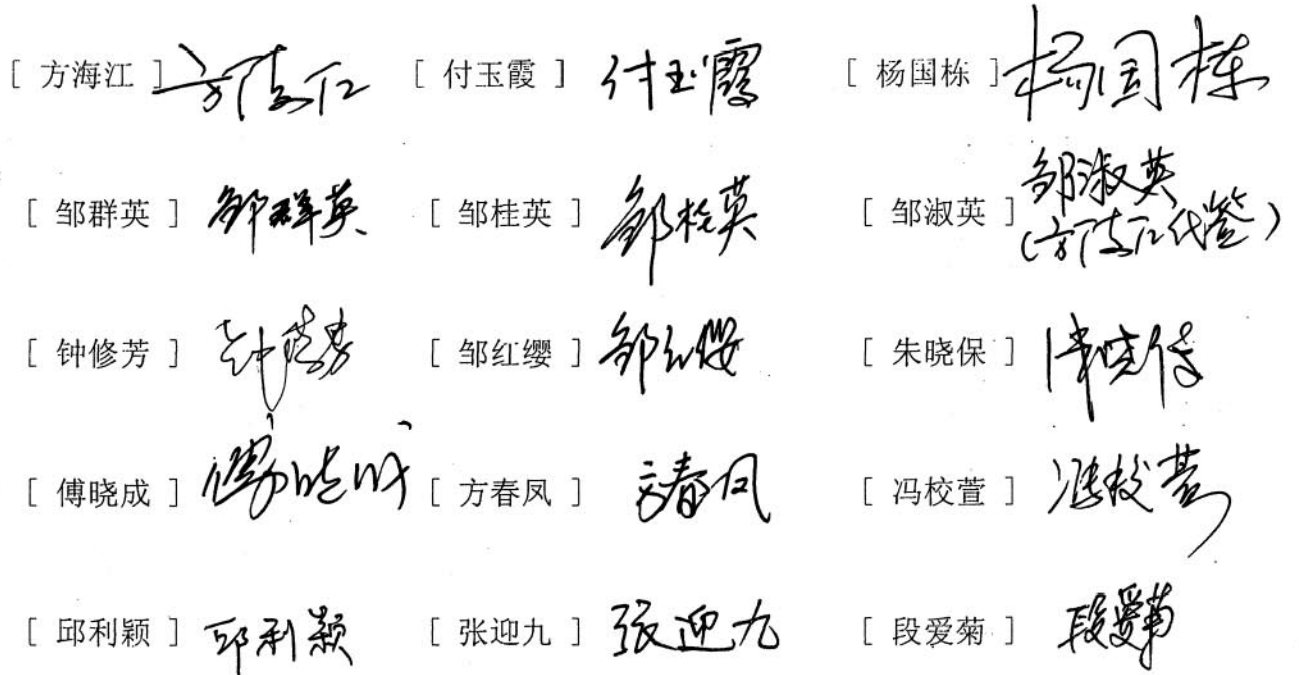 [ 方海江 ] 方海江 [ 付玉霞 ] 付玉霞 [ 杨国栋 ] 杨国栋
[ 邹群英 ] 邹群英 [ 邹桂英 ] 邹桂英 [ 邹淑英 ] 邹淑英
(方海江代签)
[ 钟修芳 ] 钟修芳 [ 邹红缨 ] 邹红缨 [ 朱晓保 ] 朱晓保
[ 傅晓成 ] 傅晓成 [ 方春凤 ] 方春凤 [ 冯校萱 ] 冯校萱
[ 邱利颖 ] 邱利颖 [ 张迎九 ] 张迎九 [ 段爱菊 ] 段爱菊